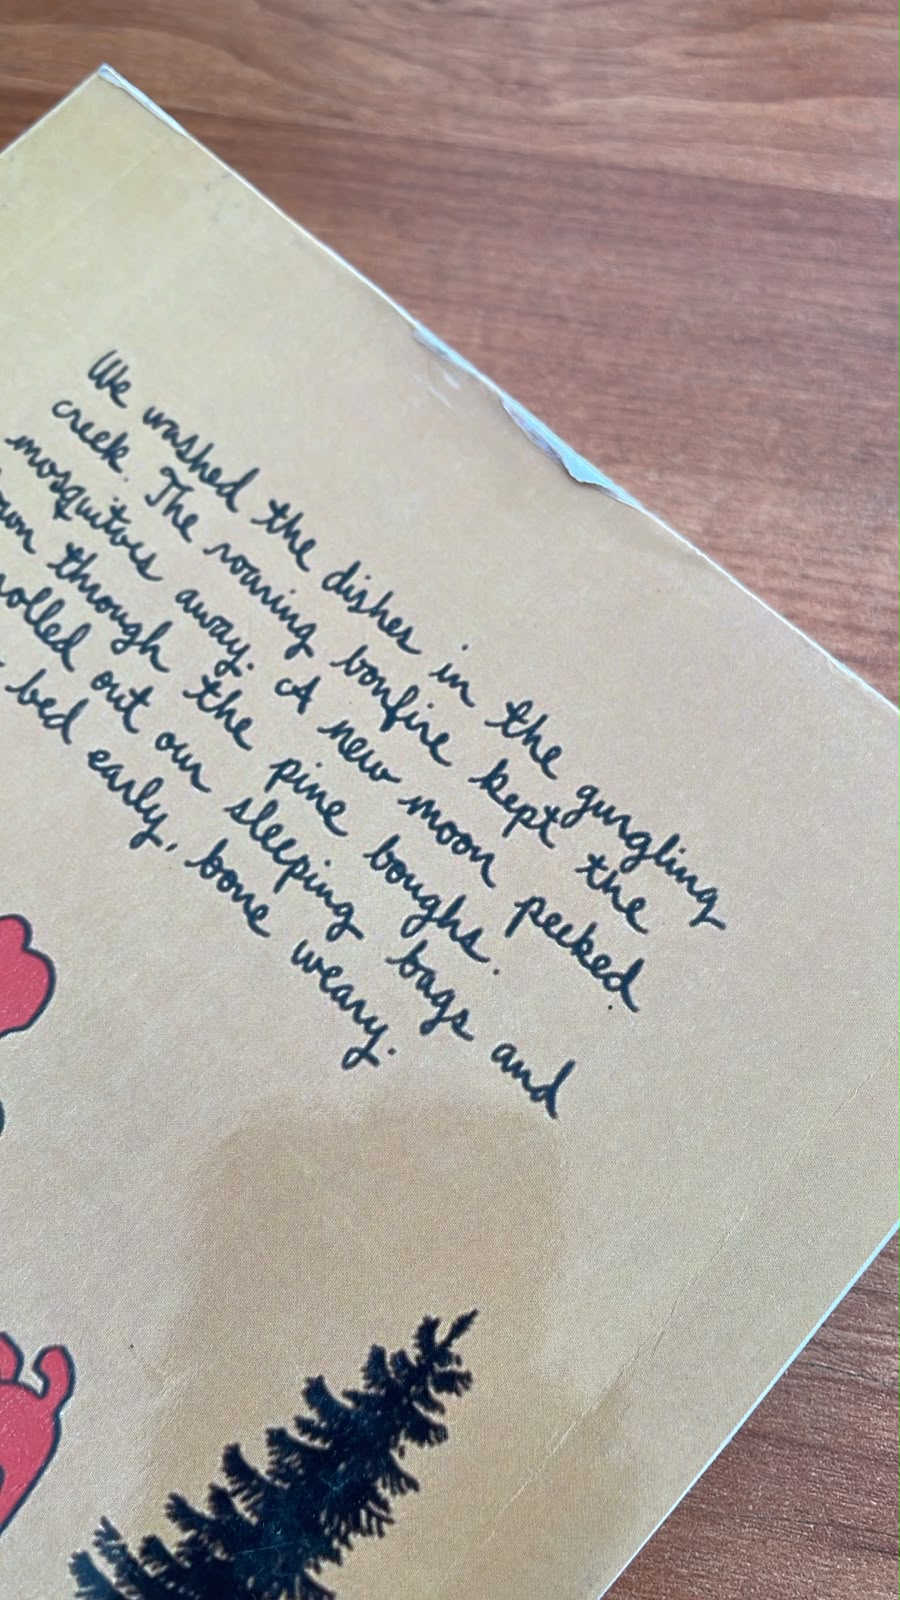 We washed the dishes in the gurgling
creek. The roaring bonfire kept the
mosquitoes away. A new moon peeked
through the pine boughs.
rolled out our sleeping bags and
bed early, bone weary.